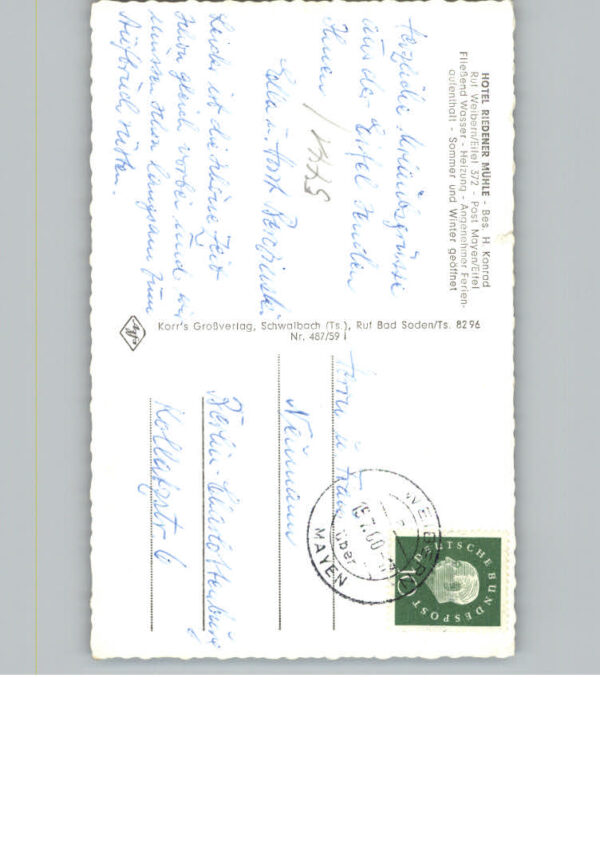 HOTEL RIEDENER MÜHLE - Bes. H. Konrad
Ruf Weibern/Eifel 372 - Post Mayen/Eifel
Fließend Wasser - Heizung - Angenehmer Ferien-
aufenthalt - Sommer und Winter geöffnet
Herzliche Urlaubsgrüsse
aus der Eifel senden
Ihnen
Ella u. Horst
Leider ist die schöne Zeit
schon gleich vorbei und wir
müssen schon langsam zum
Aufbruch rüsten.
Korr's Großverlag, Schwalbach (Ts.), Ruf Bad Soden/Ts. 8296
Nr. 487/59 i
Herrn u. Frau
Neumann
Berlin-Charlottenburg
WEIBERN
15.7.60
über
MAYEN
DEUTSCHE BUNDESPOST
10